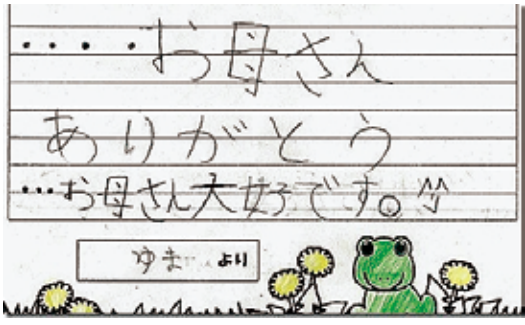 ・・・・お母さん
ありがとう
・・・お母さん大好きです。^^
ゆま より